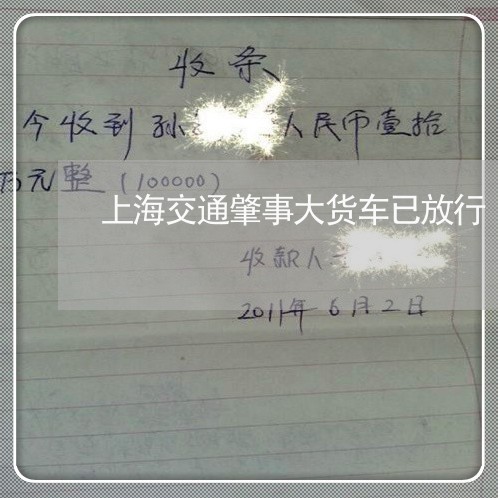 收条
今收到孙人民币壹拾
万元整(100000)
上海交通肇事大货车已放行
收款人
2011年6月2日